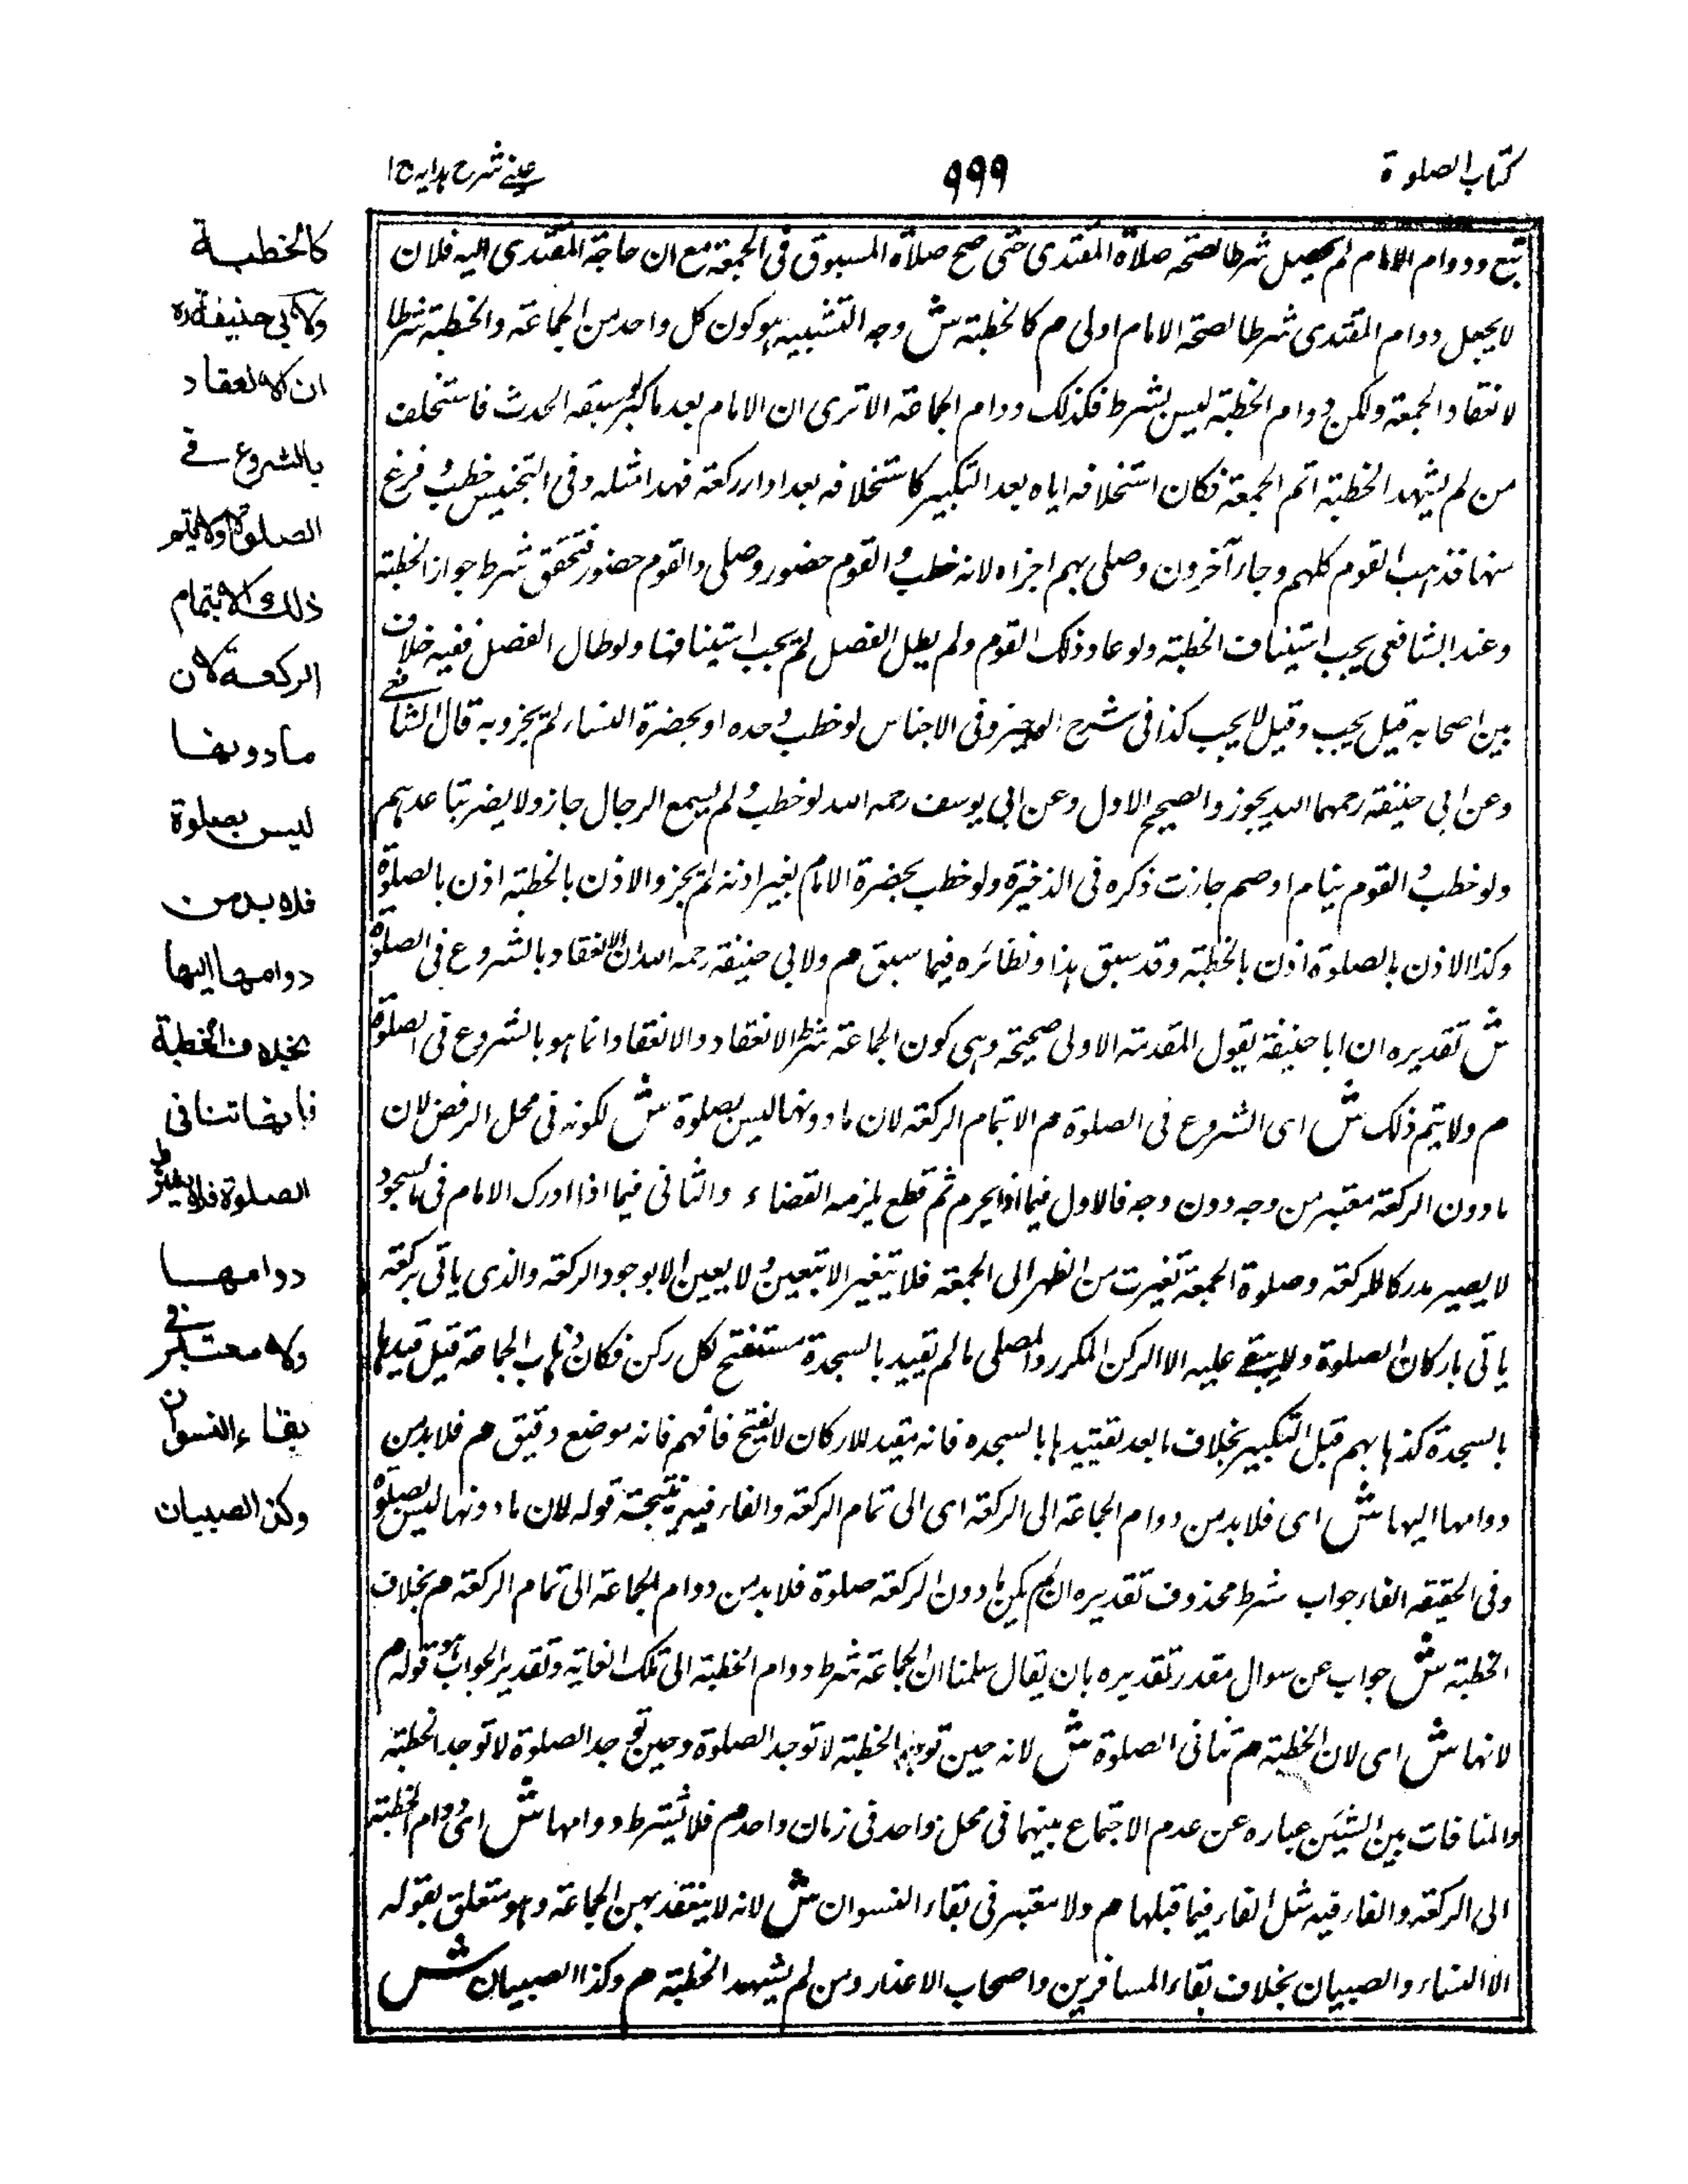 كتاب الصلوة
٩٩٩
عيني شرح هدايه ج ١
تبع ودوام الامام لم يجعل شرطا لصحة صلاة المقتدى حتى صح صلاة المسبوق فى الجمعة مع ان حاجة المقتدى اليه فلان
لا يجعل دوام المقتدى شرطا لصحة الامام اولى م كالخطبة ش وجه التشبيه هو كون كل واحد من الجماعة والخطبة شرطا
لانعقاد الجمعة ولكن دوام الخطبة ليس بشرط فكذلك دوام الجماعة الا ترى ان الامام بعد ما كبر سبقه الحدث فاستخلف
من لم يشهد الخطبة اتم الجمعة فكان استخلافه اياه بعد التكبير كاستخلافه بعد اداء ركعة فهذا مثله وفى التجنيس خطب وفرغ
منها فذهب القوم كلهم وجاء آخرون وصلى بهم اجزاه لانه خطب والقوم حضور وصلى والقوم حضور فتحقق شرط جواز الخطبة
وعند الشافعى يجب استيناف الخطبة ولو عاد ذلك القوم ولم يطل الفصل لم يجب استينافها ولو طال الفصل ففيه خلاف
بين اصحابه قيل يجب وقيل لا يجب كذا فى شرح الوجيز وفى الاجناس لو خطب وحده او بحضرة النساء لم يجز وبه قال الشافعى
وعن ابى حنيفة رحمهما الله يجوز والصحيح الاول وعن ابى يوسف رحمه الله لو خطب ولم يسمع الرجال جاز ولا يضر تباعدهم
ولو خطب والقوم نيام او صم جازت ذكره فى الذخيرة ولو خطب بحضرة الامام بغير اذنه لم يجز والاذن بالخطبة اذن بالصلوة
وكذا الاذن بالصلوة اذن بالخطبة وقد سبق هذا ونظائره فيما سبق م ولابى حنيفة رحمه الله ان الانعقاد بالشروع فى الصلوة
ش تقديره ان ابا حنيفة يقول المقدمة الاولى صحيحة وهى كون الجماعة شرط الانعقاد والانعقاد انما هو بالشروع فى الصلوة
م ولا يتم ذلك ش اى الشروع فى الصلوة م الا بتمام الركعة لان ما دونها ليس بصلوة ش لكونه فى محل الرفض لان
ما دون الركعة معتبر من وجه دون وجه فالاول فيما اذا يحرم ثم قطع يلزمه القضاء والثانى فيما اذا ادرك الامام فى السجود
لا يصير مدركا للركعة وصلوة الجمعة تغيرت من الظهر الى الجمعة فلا يتغير الا بتعين ولا يعين الا بوجود الركعة والذى ياتى بركعة
ياتى باركان الصلوة ولا يبقى عليه الا الركن المكرر والمصلى ما لم يقيد بالسجدة مستفتح لكل ركن فكان ذهاب الجماعة قبل قيدها
بالسجدة كذهابهم قبل التكبير بخلاف ما بعد تقييدها بالسجده فانه مقيد للاركان لا يفتح فافهم فانه موضع دقيق م فلا بد من
دوامها اليها ش اى فلا بد من دوام الجماعة الى الركعة اى الى تمام الركعة والفاء فيه نتيجة قوله لان ما دونها ليس بصلوة
وفى الحقيقه الفاء جواب شرط محذوف تقديره ان لم يكن ما دون الركعة صلوة فلا بد من دوام الجماعة الى تمام الركعة م بخلاف
الخطبة ش جواب عن سوال مقدر تقديره بان يقال سلمنا ان الجماعة شرط دوام الخطبة الى تلك الغاية وتقدير الجواب هو قوله م
لانها ش اى لان الخطبة م تنافى الصلوة ش لانه حين توجد الخطبة لا توجد الصلوة وحين توجد الصلوة لا توجد الخطبة
والمنافات بين الشيئين عباره عن عدم الاجتماع بينهما فى محل واحد فى زمان واحد م فلا يشترط دوامها ش اى دوام الخطبة
الى الركعة والفاء فيه مثل الفاء فيما قبلها م ولا معتبر فى بقاء النسوان ش لانه لا ينعقد بهن الجماعة وهو متعلق بقوله
الا النساء والصبيان بخلاف بقاء المسافرين واصحاب الاعذار ومن لم يشهد الخطبة م وكذا الصبيان ش
كالخطبة
ولابى حنيفة ره
ان الانعقاد
بالشروع فى
الصلوة ولا يتم
ذلك الا بتمام
الركعة لان
ما دونها
ليس بصلوة
فلا بد من
دوامها اليها
بخلاف الخطبة
فانها تنافى
الصلوة فلا يشترط
دوامها
ولا معتبر فى
بقاء النسوان
وكذا الصبيان